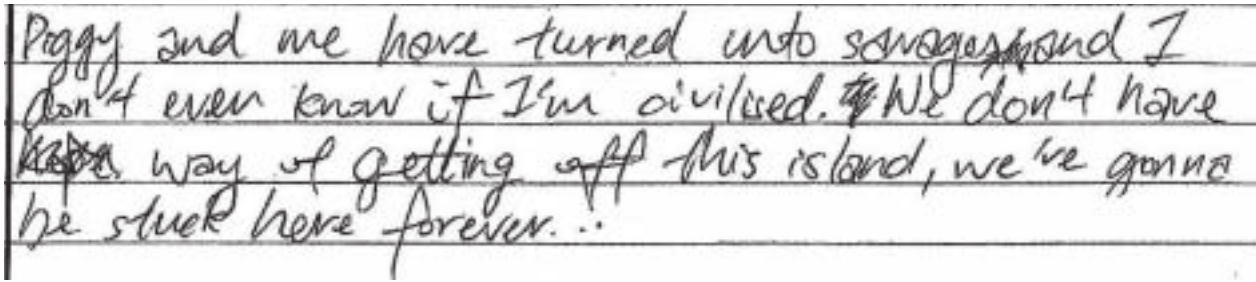 Piggy and me have turned into savages and I
don't even know if I'm civilised. We don't have
way of getting off this island, we've gonna
be stuck here forever...